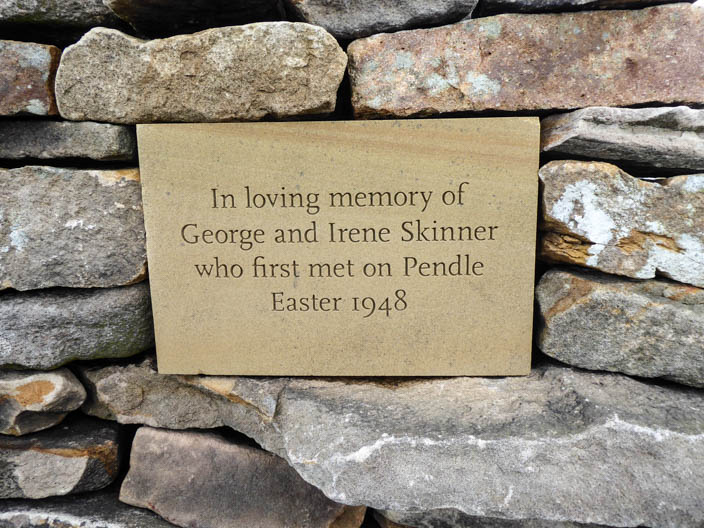 In loving memory of
George and Irene Skinner
who first met on Pendle
Easter 1948